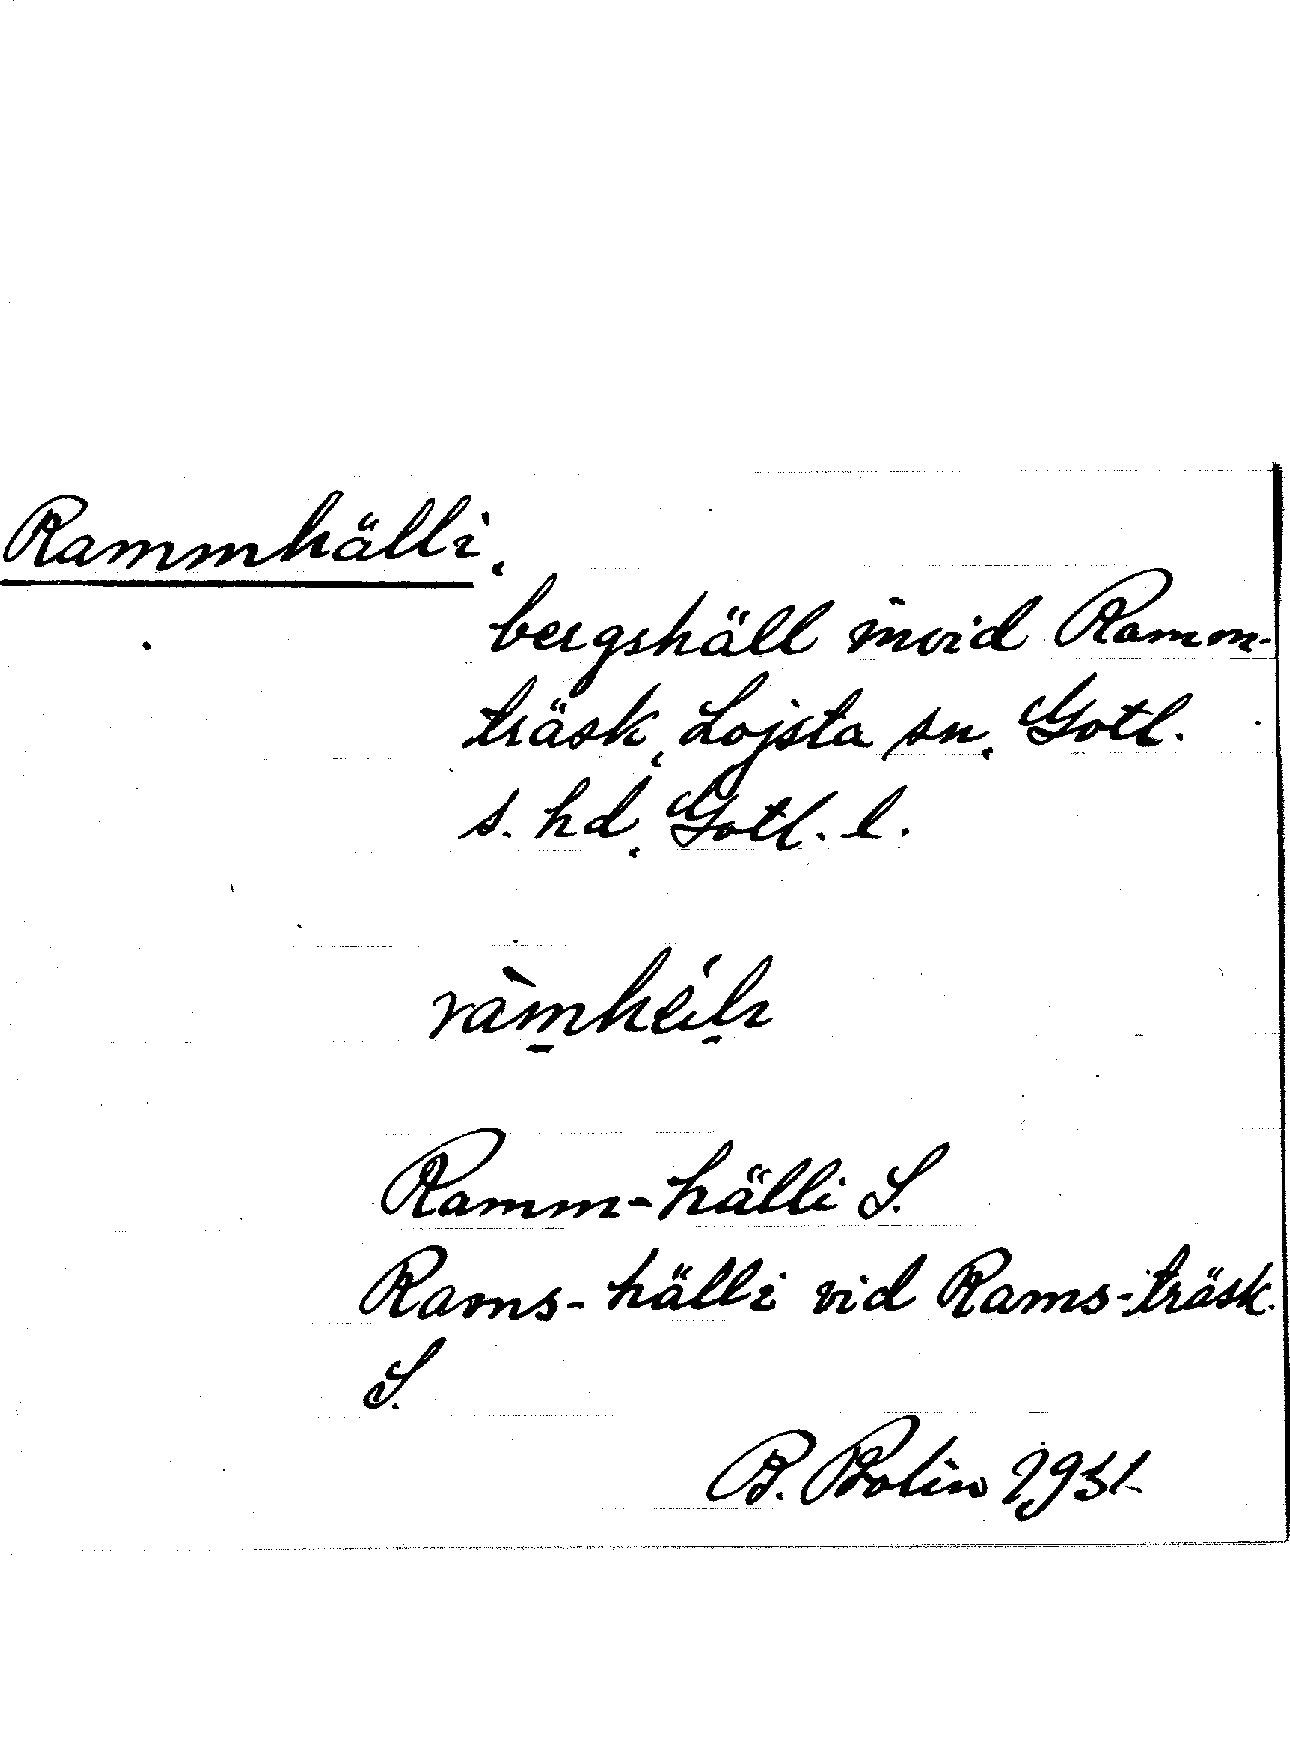 Rammhälli,
bergshäll invid Ramm-
träsk, Lojsta sn, Gotl.
s. hd, Gotl. l.
ràm̱héiḷı
Ramm-hälli S.
Rams-hälli vid Rams-träsk.
S.
B. Bolin 1931